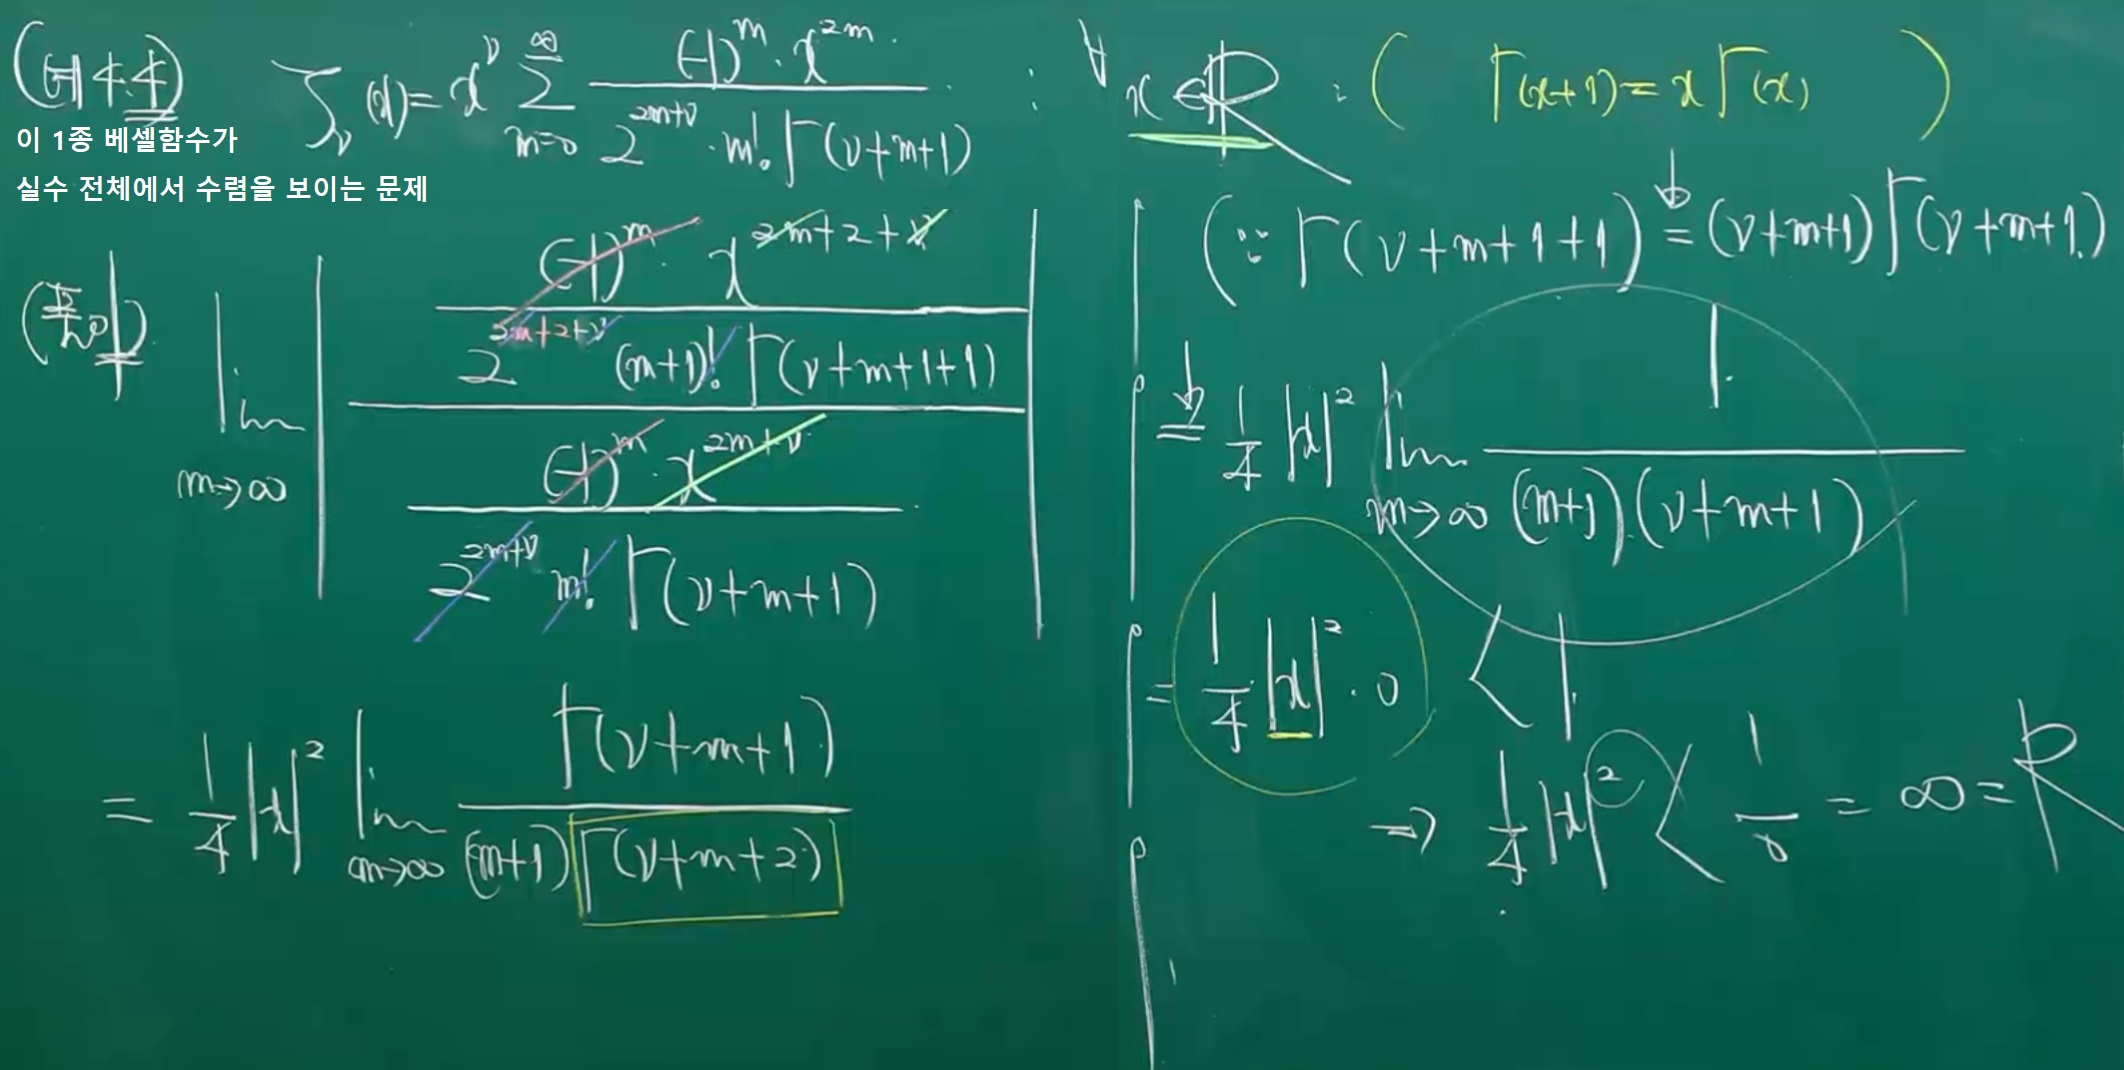 J_ν(x) = x^ν ∑_{m=0}^{∞} \frac{(-1)^m · x^{2m}}{2^{2m+ν} · m! Γ(ν+m+1)} : ∀x ∈ R : ( Γ(x+1) = x Γ(x) )
이 1종 베셀함수가
실수 전체에서 수렴을 보이는 문제
lim_{m→∞} | \frac{\frac{(-1)^m · x^{2m+2+ν}}{2^{2m+2+ν} (m+1)! Γ(ν+m+1+1)}}{\frac{(-1)^m · x^{2m+ν}}{2^{2m+ν} m! Γ(ν+m+1)}} |
= \frac{1}{4} |x|^2 lim_{m→∞} \frac{Γ(ν+m+1)}{(m+1) Γ(ν+m+2)}
(∵ Γ(ν+m+1+1) = (ν+m+1) Γ(ν+m+1))
= \frac{1}{4} |x|^2 lim_{m→∞} \frac{1}{(m+1)·(ν+m+1)}
= \frac{1}{4} |x|^2 · 0 < 1.
→ \frac{1}{4} |x|^2 < \frac{1}{0} = ∞ = R